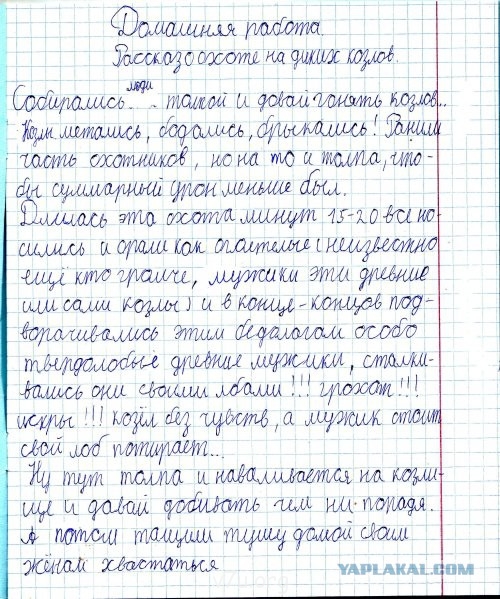 Домашняя работа.
Рассказ о охоте на диких козлов.
люди
Собирались толпой и довай гонять козлов...
Козлы метались, бодались, брыкались! Ранили
часть охотников, но на то и толпа, что-
бы суммарный урон меньше был.
Длилась эта охота минут 15-20 все но-
сились и орали как оголтелые (неизвестно
ещё кто громче, мужики эти древние
или сами козлы) и в конце-концов под-
ворачивались этим бедолагам особо
твердолобые древние мужики, сталки-
вались они своими лбами!!! грохот!!!
искры!!! козёл без чувств, а мужик стоит
свой лоб потирает...
Ну тут толпа и наваливается на козли-
ще и давай добивать чем ни-поподя.
А потом тащили тушу домой своим
жёнам хвастаться
YAPLAKAL.COM